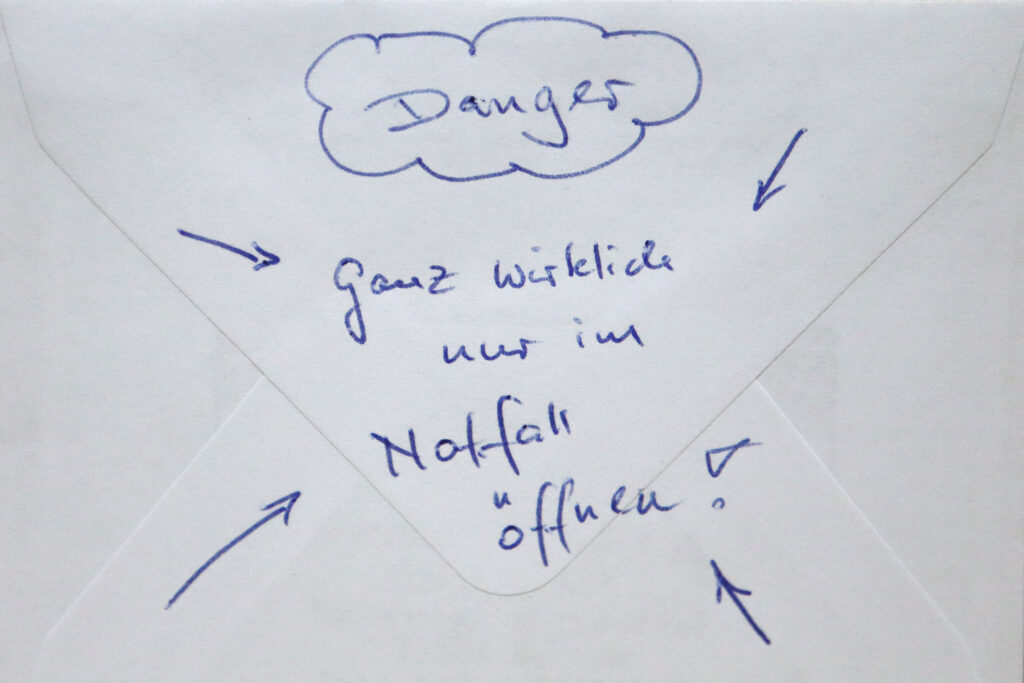 Danger
Ganz wirklich
nur im
Notfall
öffnen!